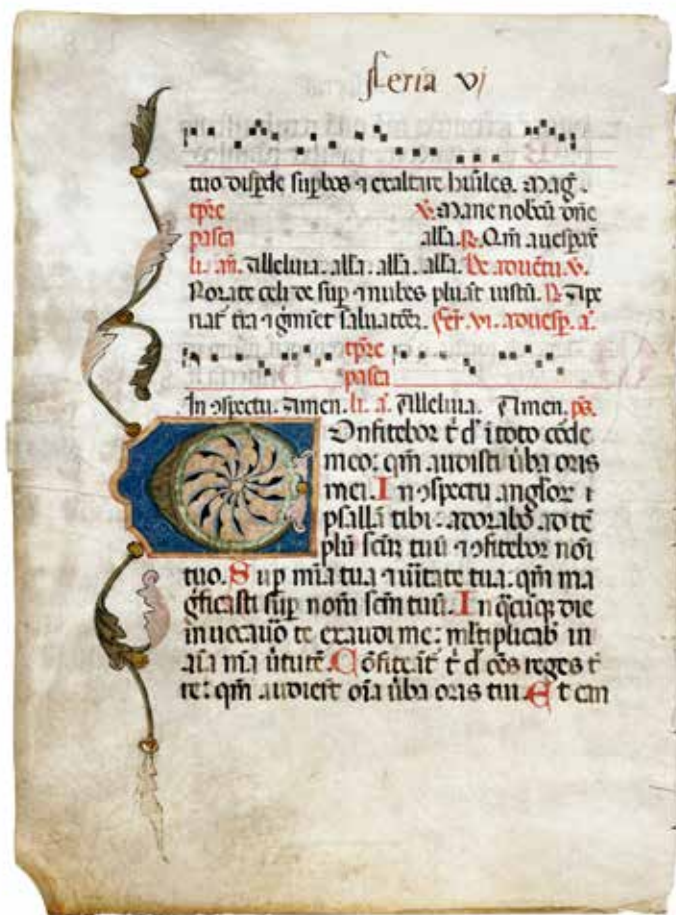 feria vj
tuo disp̄de sup̄bos ⁊ exaltare hūiles. Mag̃.
tp̄re ℣. Mane nobcū dñe
pasca alla. ℟. Qm̄ aduesparē
li. añ. Alleluia. alla. alla. alla. De aduētu. ℣.
Rorate celi desup ⁊ nubes pluāt iustū. ℟. Apē
riat t̄ra ⁊ ḡmīet saluatorē. Fer̄. vi. ad uesp̄. a.
tp̄re
pasca
In ɔspectu. Amen. li. a. Alleluia. Amen. ps.
Onfitebor t̄ d̄ ī toto corde
meo: qm̄ audisti ūba oris
mei. In ɔspectu angl̄oꝝ
psallā tibi: adorabo ad tē
plū scm̄ tuū ⁊ ɔfitebor noī
tuo. Sup m̄ia tua ⁊ ūitate tua: qm̄ ma
gficasti sup nom̄ scm̄ tuū. In q̄cūq̄ die
inuocauo te exaudi me: ml̄tiplicab̄ in
aīa m̄a ūtutē. Cōfiteāt̄ t̄ d̄ oēs reges t̄
re: qm̄ audiert̄ oīa ūba oris tui. Et can